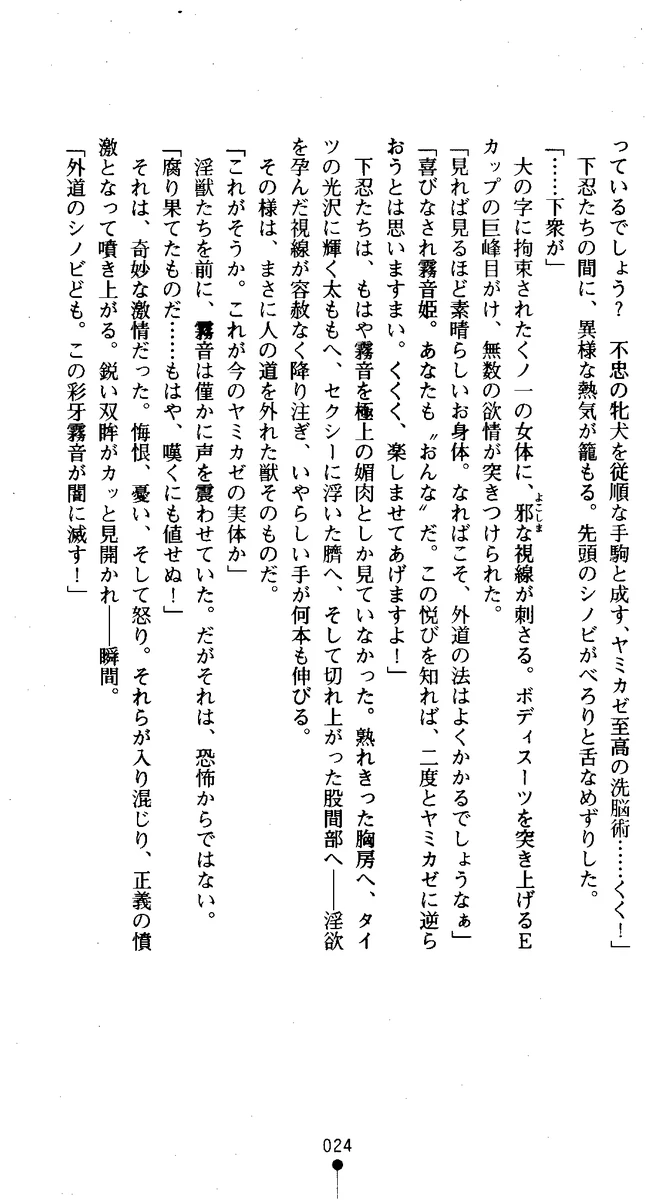 っているでしょう? 不忠の牝犬を従順な手駒と成す、ヤミカゼ至高の洗脳術……くく!」
下忍たちの間に、異様な熱気が籠もる。先頭のシノビがべろりと舌なめずりした。
「……下衆が」
大の字に拘束されたくノ一の女体に、邪な視線が刺さる。ボディスーツを突き上げるE
よこしま
カップの巨峰目がけ、無数の欲情が突きつけられた。
「見れば見るほど素晴らしいお身体。なればこそ、外道の法はよくかかるでしょうなぁ」
「喜びなされ霧音姫。あなたも〝おんな〟だ。この悦びを知れば、二度とヤミカゼに逆ら
おうとは思いますまい。くくく、楽しませてあげますよ!」
下忍たちは、もはや霧音を極上の媚肉としか見ていなかった。熟れきった胸房へ、タイ
ツの光沢に輝く太ももへ、セクシーに浮いた臍へ、そして切れ上がった股間部へ――淫欲
を孕んだ視線が容赦なく降り注ぎ、いやらしい手が何本も伸びる。
その様は、まさに人の道を外れた獣そのものだ。
「これがそうか。これが今のヤミカゼの実体か」
淫獣たちを前に、霧音は僅かに声を震わせていた。だがそれは、恐怖からではない。
「腐り果てたものだ……もはや、嘆くにも値せぬ!」
それは、奇妙な激情だった。悔恨、憂い、そして怒り。それらが入り混じり、正義の憤
激となって噴き上がる。鋭い双眸がカッと見開かれ――瞬間。
「外道のシノビども。この彩牙霧音が闇に滅す!」
024